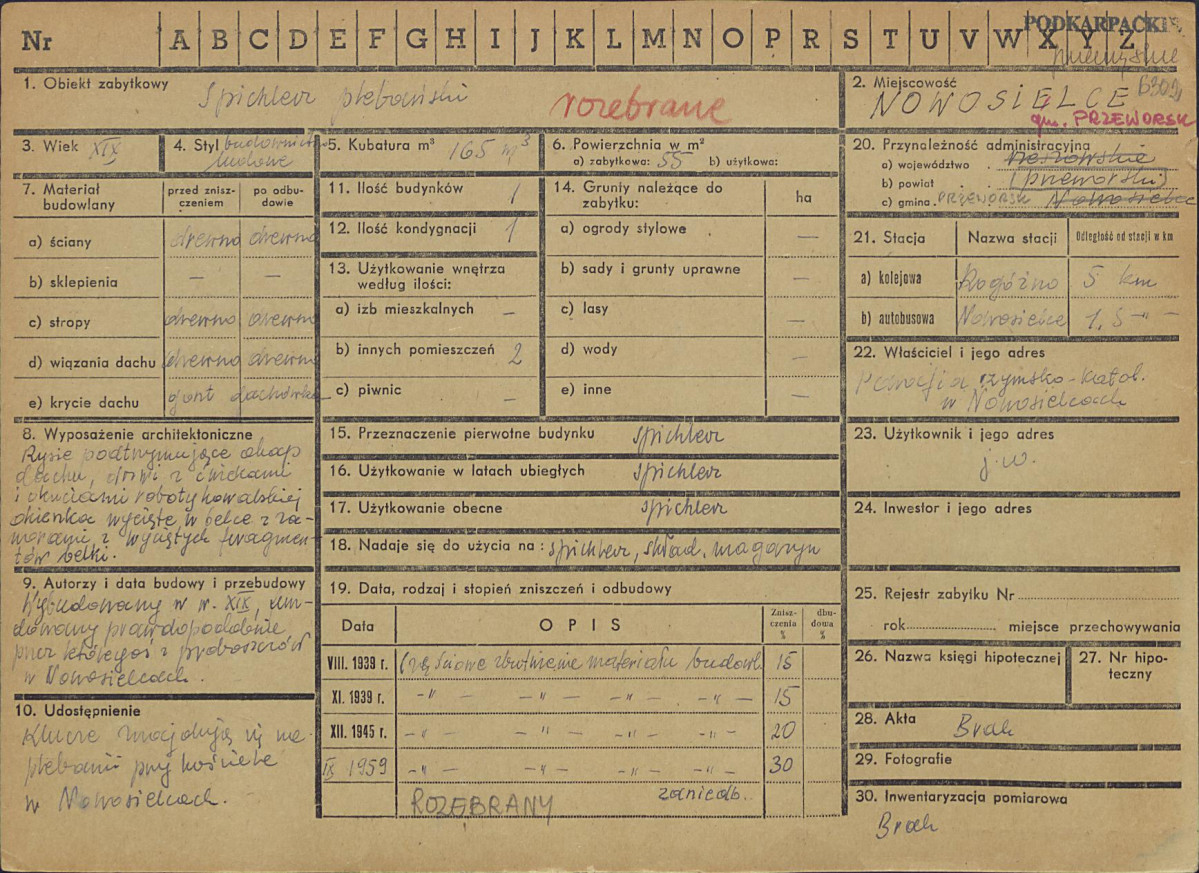 PODKARPACKIE
Nr A B C D E F G H I J K L M N O P R S T U V W X Y Z
1. Obiekt zabytkowy
Spichlerz plebański
rozebrane
2. Miejscowość
NOWOSIELCE
gm. PRZEWORSK
3. Wiek XIX
4. Styl budownictwo
ludowe
5. Kubatura m³ 165 m³
6. Powierzchnia w m²
a) zabytkowa: 55 b) użytkowa:
20. Przynależność administracyjna
a) województwo rzeszowskie
b) powiat (przeworski)
c) gmina PRZEWORSK Nowosielce
7. Materiał budowlany
przed znisz-
czeniem
po odbu-
dowie
a) ściany drewno drewno
b) sklepienia — —
c) stropy drewno drewno
d) wiązania dachu drewno drewno
e) krycie dachu gont dachówka
11. Ilość budynków 1
12. Ilość kondygnacji 1
13. Użytkowanie wnętrza
według ilości:
a) izb mieszkalnych —
b) innych pomieszczeń 2
c) piwnic —
14. Grunty należące do
zabytku:
ha
a) ogrody stylowe —
b) sady i grunty uprawne —
c) lasy —
d) wody —
e) inne —
21. Stacja Nazwa stacji Odległość od stacji w km
a) kolejowa Rogóżno 5 km
b) autobusowa Nowosielce 1,5 -"-
22. Właściciel i jego adres
Parafia rzymsko-katol.
w Nowosielcach
8. Wyposażenie architektoniczne
Rysie podtrzymujące okap
dachu, drzwi z ćwiekami
i okuciami roboty kowalskiej
okienka wycięte w belce z za-
z wyciętych fragmen-
tów belki.
15. Przeznaczenie pierwotne budynku spichlerz
16. Użytkowanie w latach ubiegłych spichlerz
17. Użytkowanie obecne spichlerz
18. Nadaje się do użycia na: spichlerz, skład, magazyn
23. Użytkownik i jego adres
j.w.
24. Inwestor i jego adres
9. Autorzy i data budowy i przebudowy
Wybudowany w w. XIX,
prawdopodobnie
przez któregoś z proboszczów
w Nowosielcach.
19. Data, rodzaj i stopień zniszczeń i odbudowy
Data OPIS Znisz-
czenia
% dbu-
dowa
%
VIII. 1939 r. Częściowe zbutwienie materiału budowl. 15
XI. 1939 r. -"- -"- -"- -"- 15
XII. 1945 r. -"- -"- -"- -"- 20
IX 1959 -"- -"- -"- -"- 30
ROZEBRANY zaniedb.
25. Rejestr zabytku Nr
rok miejsce przechowywania
26. Nazwa księgi hipotecznej
27. Nr hipo-
teczny
10. Udostępnienie
Klucze znajdują się na
plebanii przy kościele
w Nowosielcach.
28. Akta Brak
29. Fotografie
30. Inwentaryzacja pomiarowa
Brak